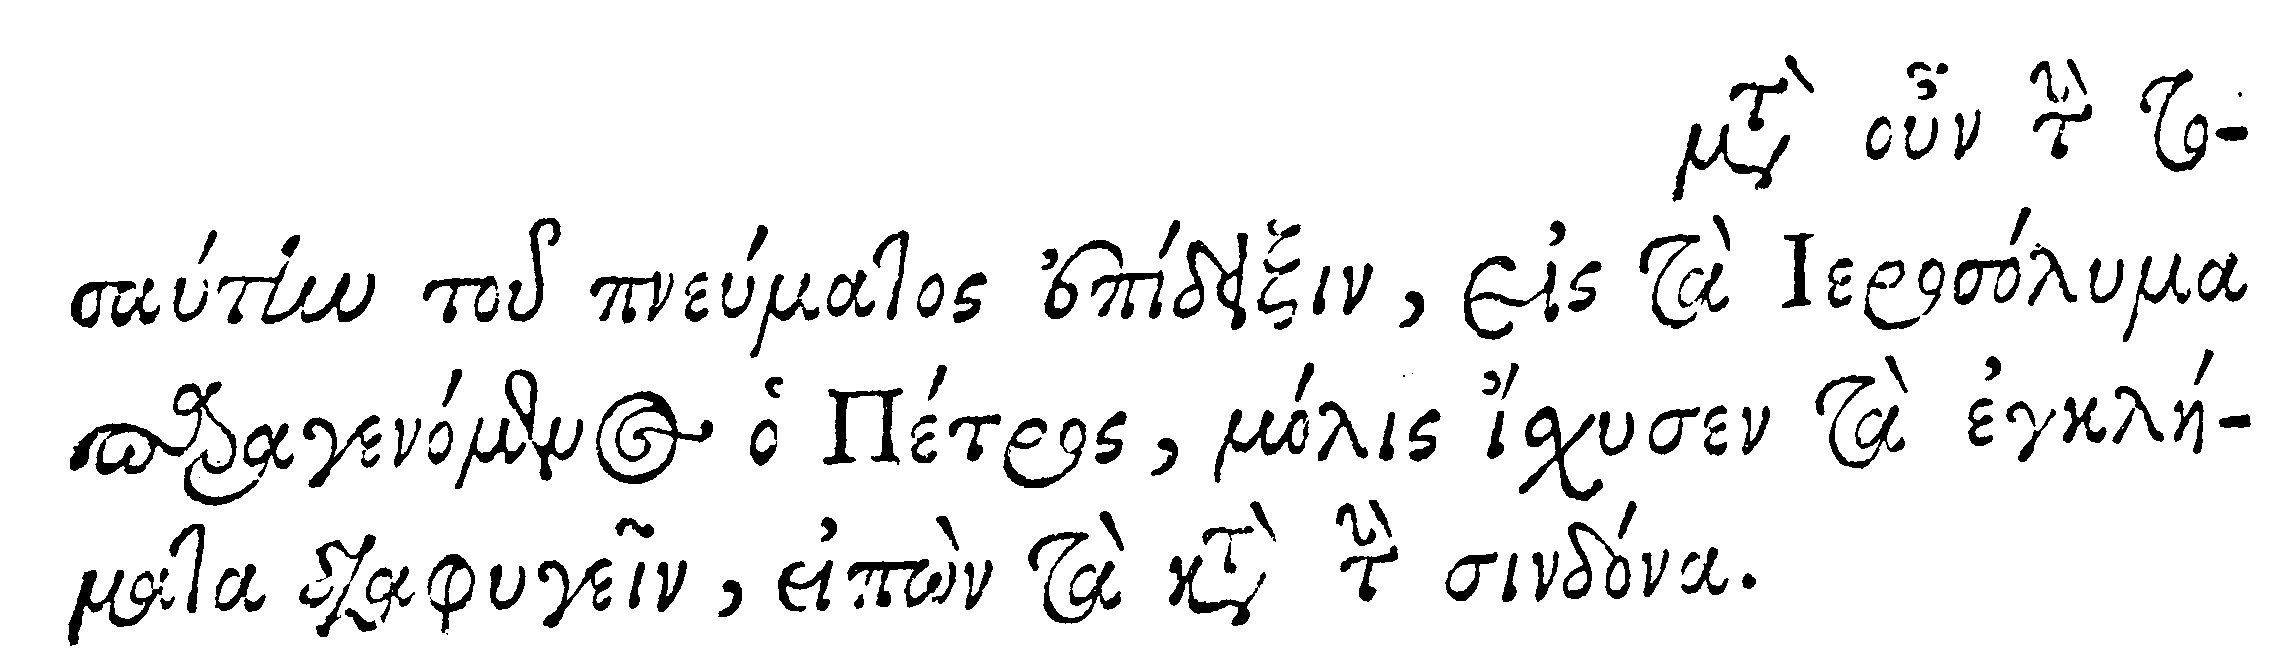 μετὰ οὖν τὴν το-
σαύτην τοῦ πνεύματος ἐπίδειξιν, εἰς τὰ Ιεροσόλυμα
παραγενόμενος ὁ Πέτρος, μόλις ἴσχυσεν τὰ ἐγκλή-
ματα διαφυγεῖν, εἰπὼν τὰ κατὰ τὴν σινδόνα.